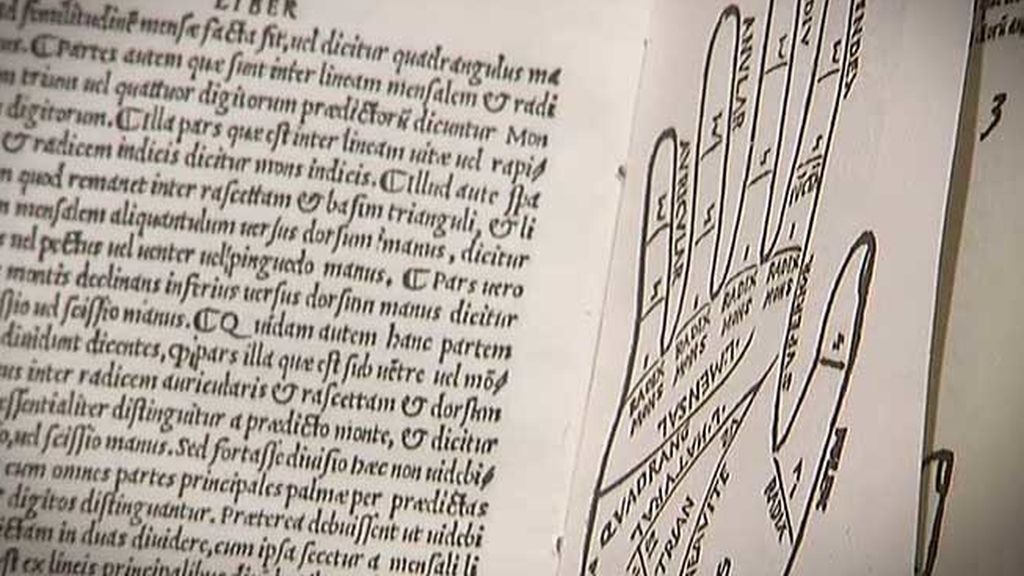 LIBER
similitudinē mensæ facta sit, uel dicitur quadrangulus ma
ℂPartes autem quæ sunt inter lineam mensalem & radi
trium uel quattuor digitorum prædictorū dicuntur Mon
digitorum. ℂIlla pars quæ est inter lineam uitæ uel rapi
& radicem indicis dicitur mons indicis. ℂIllud autē spa
quod remanet inter rascettam & basim trianguli, & li
mensalem aliquantulum uersus dorsum manus, dicitur
uel pectus uel uenter uel pinguedo manus. ℂPars uero
montis declinans inferius uersus dorsum manus dicitur
ssio uel scissio manus. ℂQuidam autem hanc partem
diuidunt dicentes, ꝙ pars illa quæ est sub uētre uel mō
inter radicem auricularis & rascettam & dorsum
essentialiter distinguitur a prædicto monte, & dicitur
uel scissio manus. Sed fortasse diuisio hæc non uidebi
cum omnes partes principales palmæ per prædictas
digitos distinguantur. Præterea debuissent ut uidebi
in duas diuidere, cum ipsa secetur a mensali li
est ex lineis principalibus
INDEX
ANVLAR
AVRICVLAR
RADIX
MONS
RADIX
MONS
RADIX
MONS
RADIX
MONS
L. MENSAL
QVADRANG
TRIAN
POLLEX
RADIX
3